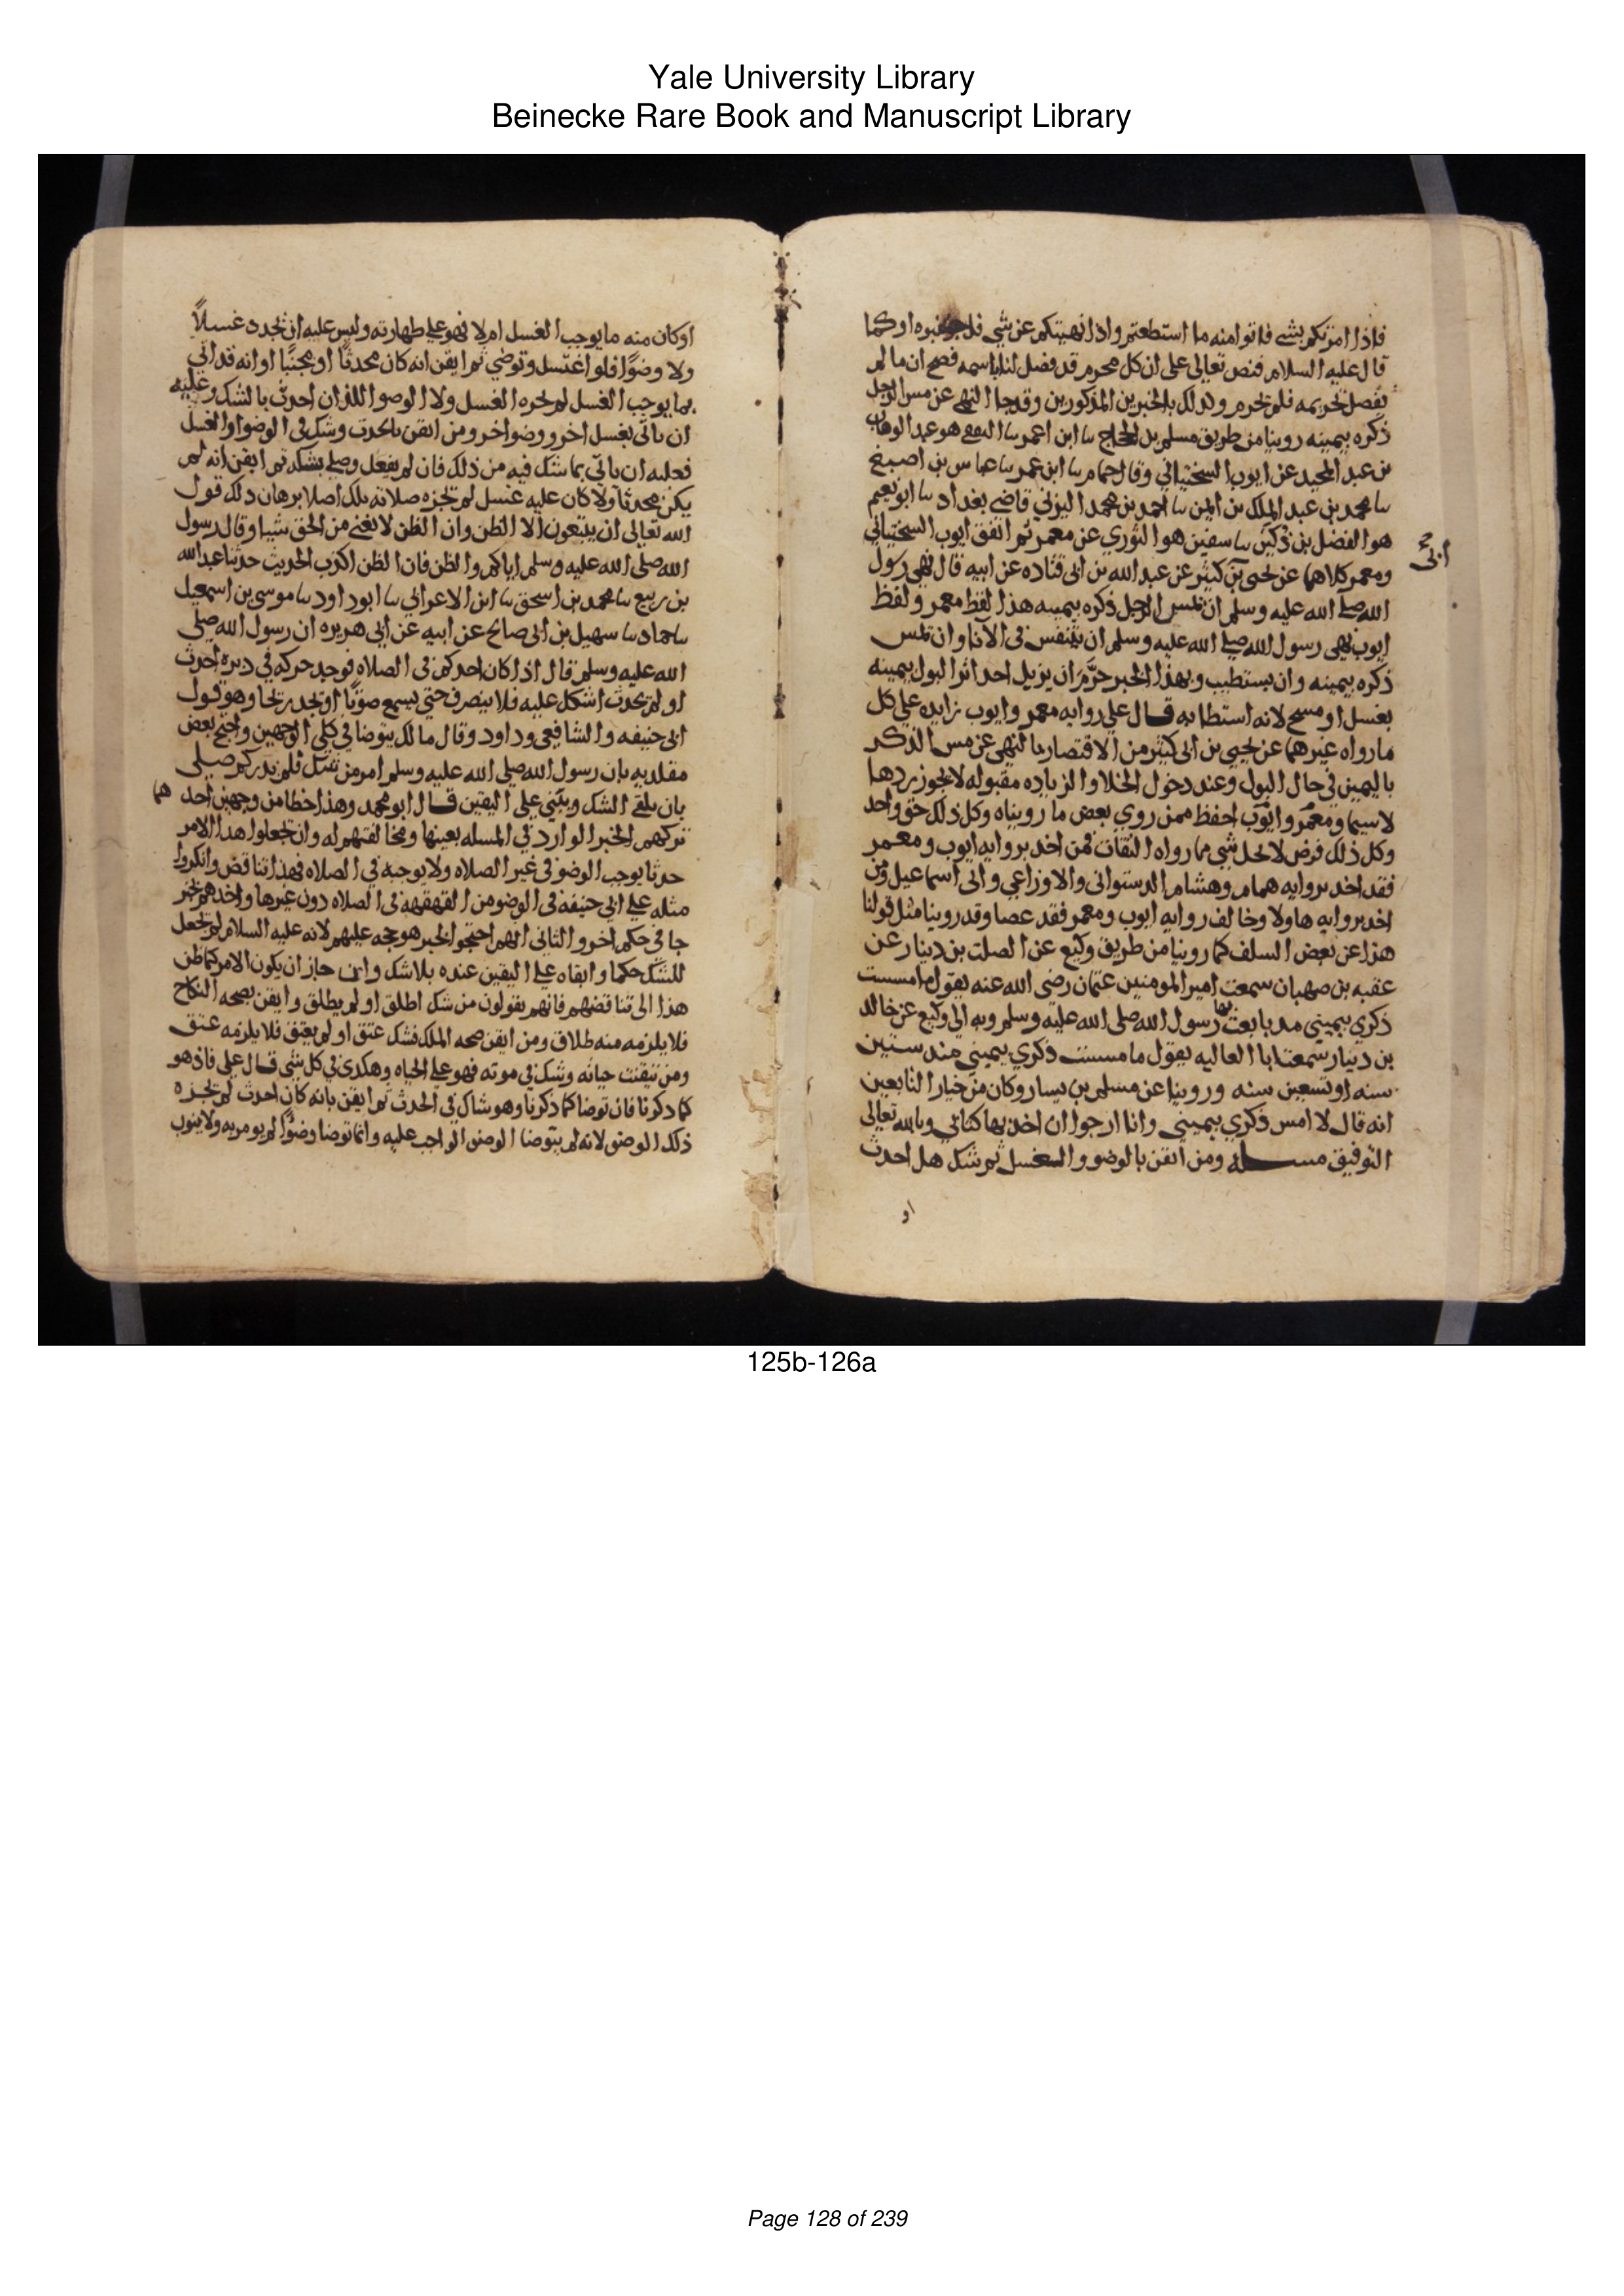 Yale University Library
Beinecke Rare Book and Manuscript Library
فاذا امرتكم بشي فاتوا منه ما استطعتم واذا نهيتكم عن شي اوكما
قال عليه السلام فنص تعالى على ان كل محرم قد فصل لنا باسمه فصح ان ما لم
يفصل تحريمه فلم يحرم وكذلك بالخبرين المذكورين وقد جا النهي عن مس الرجل
ذكره بيمينه روينا من طريق مسلم بن الحجاج سا ابن ابي عمر سا الثقفي هو عبد الوهاب
بن عبد المجيد عن ايوب السختياني وقال حمام سا ابن سا عباس بن اصبغ
سا محمد بن عبد الملك بن ايمن سا احمد بن محمد قاضي بغداد سا ابو نعيم
هو الفضل بن دكين سا سفين هو الثوري عن معمر ثم اتفق ايوب السختياني
ابي
ومعمر كلاهما عن يحيى بن كثير عن عبد الله بن ابي قتاده عن ابيه قال نهى رسول
الله صلى الله عليه وسلم ان يمس الرجل ذكره بيمينه هذا لفظ معمر ولفظ
ايوب نهى رسول الله صلى الله عليه وسلم ان يتنفس في الانا وان يمس
ذكره بيمينه وان يستطيب وبهذا الخبر حرم ان يزيل احد اثر البول بيمينه
بغسل او مسح لانه استطابه قال علي روايه معمر وايوب زايده على كل
ما رواه غيرهما عن يحيى بن ابي كثير من الاقتصار بالنهي عن مس الذكر
باليمين في حال البول وعند دخول الخلا والزياده مقبوله لا يجوز ردها
لا سيما ومعمر وايوب احفظ ممن روى بعض ما رويناه وكل ذلك حق واخذ
وكل ذلك فرض لا يحل شي مما رواه الثقات فمن اخذ بروايه ايوب ومعمر
فقد اخذ بروايه همام وهشام الدستوائى والاوزاعي وابى اسماعيل ومن
اخذ بروايه هاولا وخالف روايه ايوب ومعمر فقد عصا وقد روينا مثل قولنا
هذا عن بعض السلف كما روينا من طريق وكيع عن الصلت بن دينار عن
عقبه بن صهبان سمعت امير المومنين عثمان رضي الله عنه يقول ما مسست
ذكري بيميني مد بايعت بها رسول الله صلى الله عليه وسلم وبه الى وكيع عن خالد
بن دينار سمعت ابا العاليه يقول ما مسست ذكري بيميني منذ ستين
سنه او سبعين سنه وروينا عن مسلم بن يسار وكان من خيار التابعين
انه قال لا امس ذكري بيميني وانا ارجوا ان اخذ بها كتابي وبالله تعالى
التوفيق مسله ومن ايقن بالوضو والغسل ثم شك هل احدث
او
اوكان منه ما يوجب الغسل ام لا فهو على طهارته وليس عليه ان يجدد غسلاً
ولا وضوًا فلو اغتسل وتوضي ثم ايقن انه كان محدثًا او مجنبًا او انه قد اتي
بما يوجب الغسل لم يجزه الغسل ولا الوضو اللذان احدث بالشك وعليه
ان ياتي بغسل اخر ووضو اخر ومن ايقن بالحدث وشك في الوضو او الغسل
فعليه ان ياتي بما شك فيه من ذلك فان لم يفعل وصلي بشكه ثم ايقن انه لم
يكن محدثا ولا كان عليه غسل لم تجزه صلاته تلك اصلا برهان ذلك قول
الله تعالى ان يتبعون الا الظن وان الظن لا يغني من الحق شيا وقال رسول
الله صلى الله عليه وسلم اياكم والظن فان الظن اكذب الحديث حدثنا عبد الله
بن ربيع سا محمد بن اسحق سا ابن الاعرابي سا ابو داود سا موسى بن اسمعيل
سا حماد سا سهيل بن ابي صالح عن ابيه عن ابي هريره ان رسول الله صلى
الله عليه وسلم قال اذا كان احدكم في الصلاه فوجد حركه في دبره احدث
او لم يحدث اشكل عليه فلا ينصرف حتى يسمع صوتًا او يجد ريحا وهو قول
ابى حنيفه والشافعي وداود وقال مالك يتوضا في كلي الوجهين واحتج بعض
مقلديه بان رسول الله صلى الله عليه وسلم امر من شك فلم يدر كم صلى
بان يلقي الشك ويبني على اليقين قال ابو محمد وهذا خطا من وجهين احد هما
تركهم الخبر الوارد في المسله بعينها ومخالفتهم له وان يجعلوا هذا الامر
حدثا يوجب الوضو في غير الصلاه ولا يوجبه في الصلاه فهذا تناقض وانكروا
مثله على ابي حنيفه في الوضو من القهقهه في الصلاه دون غيرها واخذهم بخبر
جا في حكم اخر والثاني انهم احتجوا بخبر هو حجه عليهم لانه عليه السلام لم يجعل
للشك حكما وابقاه على اليقين عنده بلا شك وان جاز ان يكون الامر كما ظن
هذا الى تناقضهم فانهم يقولون من شك اطلق او لم يطلق وايقن بصحه النكاح
فلا يلزمه منه طلاق ومن ايقن صحه الملك فشك عتق او لم يعتق فلا يلزمه عتق
ومن تيقنت حياته وشك في موته فهو على الحياه وهكذى في كل شي قال علي فاذ هو
كما ذكرنا فان توضا كما ذكرنا وهو شاك في الحدث ثم ايقن بانه كان احدث لم يجزه
ذلك الوضو لانه لم يتوضا الوضو الواجب عليه وانما توضا وضوًا لم يومر به ولا ينوب
125b-126a
Page 128 of 239